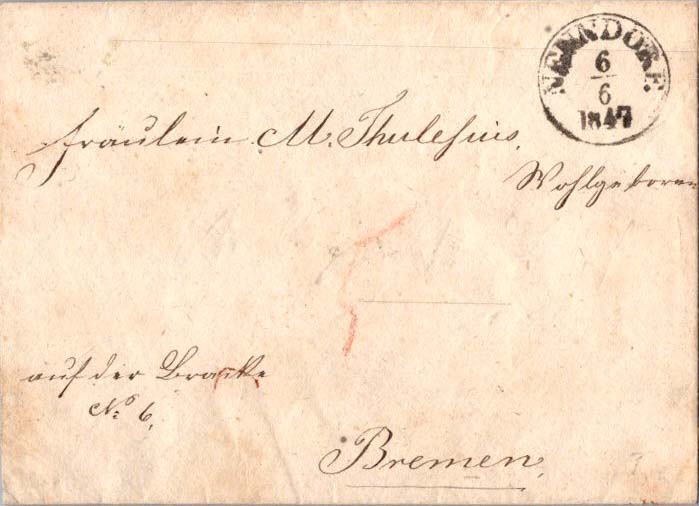 NENNDORF.
6
6
1847
Fräulein M. Thulesius,
Wohlgeboren
auf der Brauke
No 6,
Bremen,